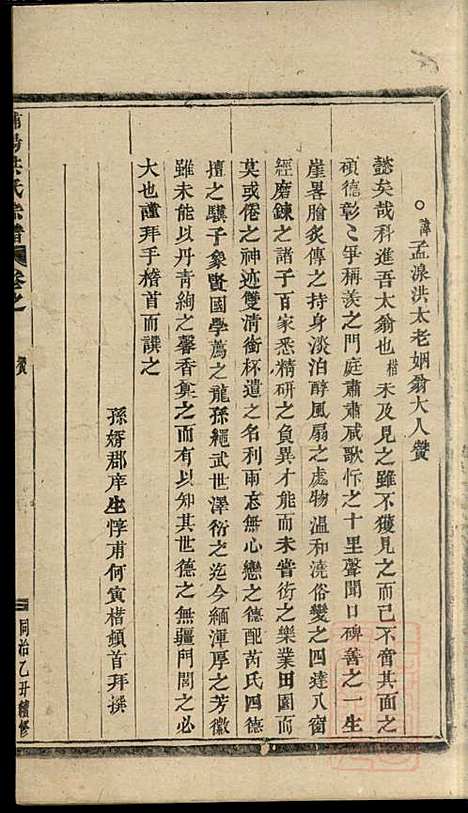 諱孟湶洪太老姻翁大人贊
懿矣哉科進吾太翁也楷未及見之雖不獲見之而已不啻其面之
碩德彰彰爭稱羨之門庭肅肅咸歌忭之十里聲聞口碑善之一生
崖畧膾炙傳之持身淡泊醇風扇之處物溫和澆俗變之四達八窗
經磨鍊之諸子百家悉精研之負異才能而未嘗衒之樂業田園而
莫或倦之神迹雙清銜杯遣之名利兩忘無心戀之德配芮氏四德
擅之驥子象賢國學薦之龍孫繩武世澤衍之迄今緬渾厚之芳徽
雖未能以丹青絢之馨香奠之而有以知其世德之無疆門閭之必
大也謹拜手稽首而譔之
孫婿郡庠生惇甫何寅楷頓首拜撰
陽洪氏宗譜
卷之
贊
同治乙丑續修